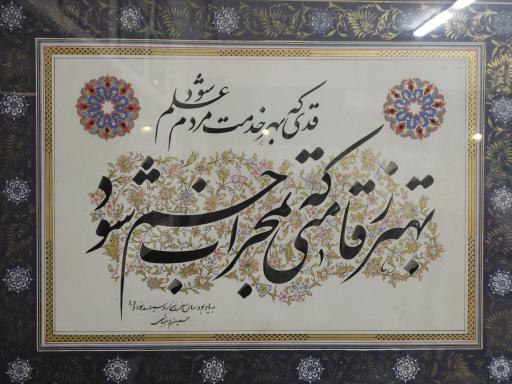 قدی که بهر خدمت مردم علم شود
بهتر ز قامتی که بمحراب خم شود